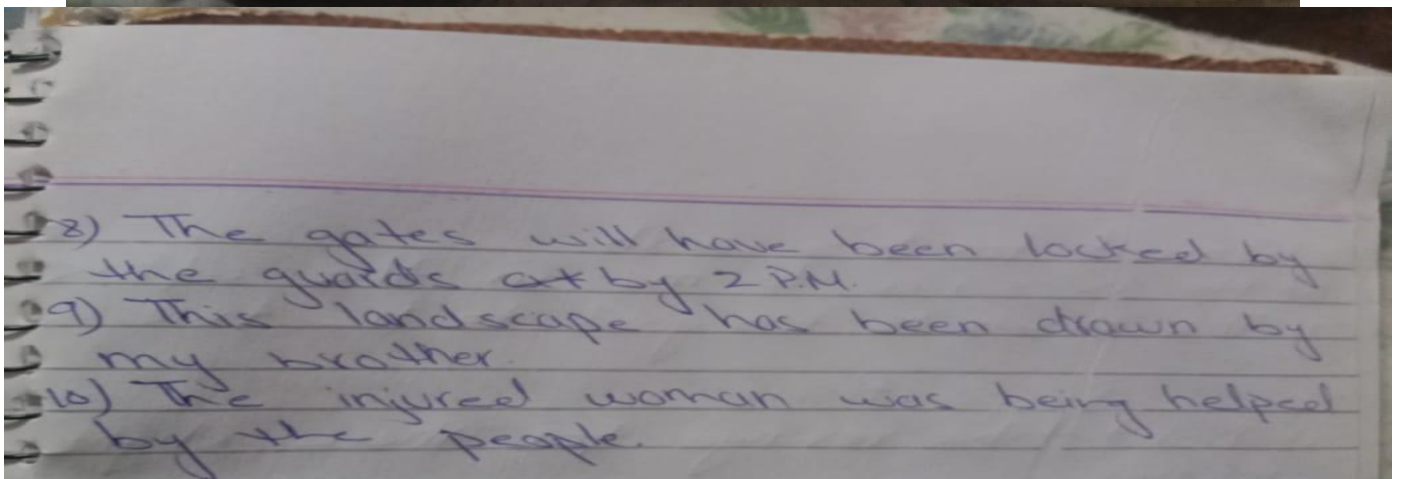 8) The gates will have been locked by
the guards at by 2 P.M.
9) This landscape has been drawn by
my brother.
10) The injured woman was being helped
by the people.